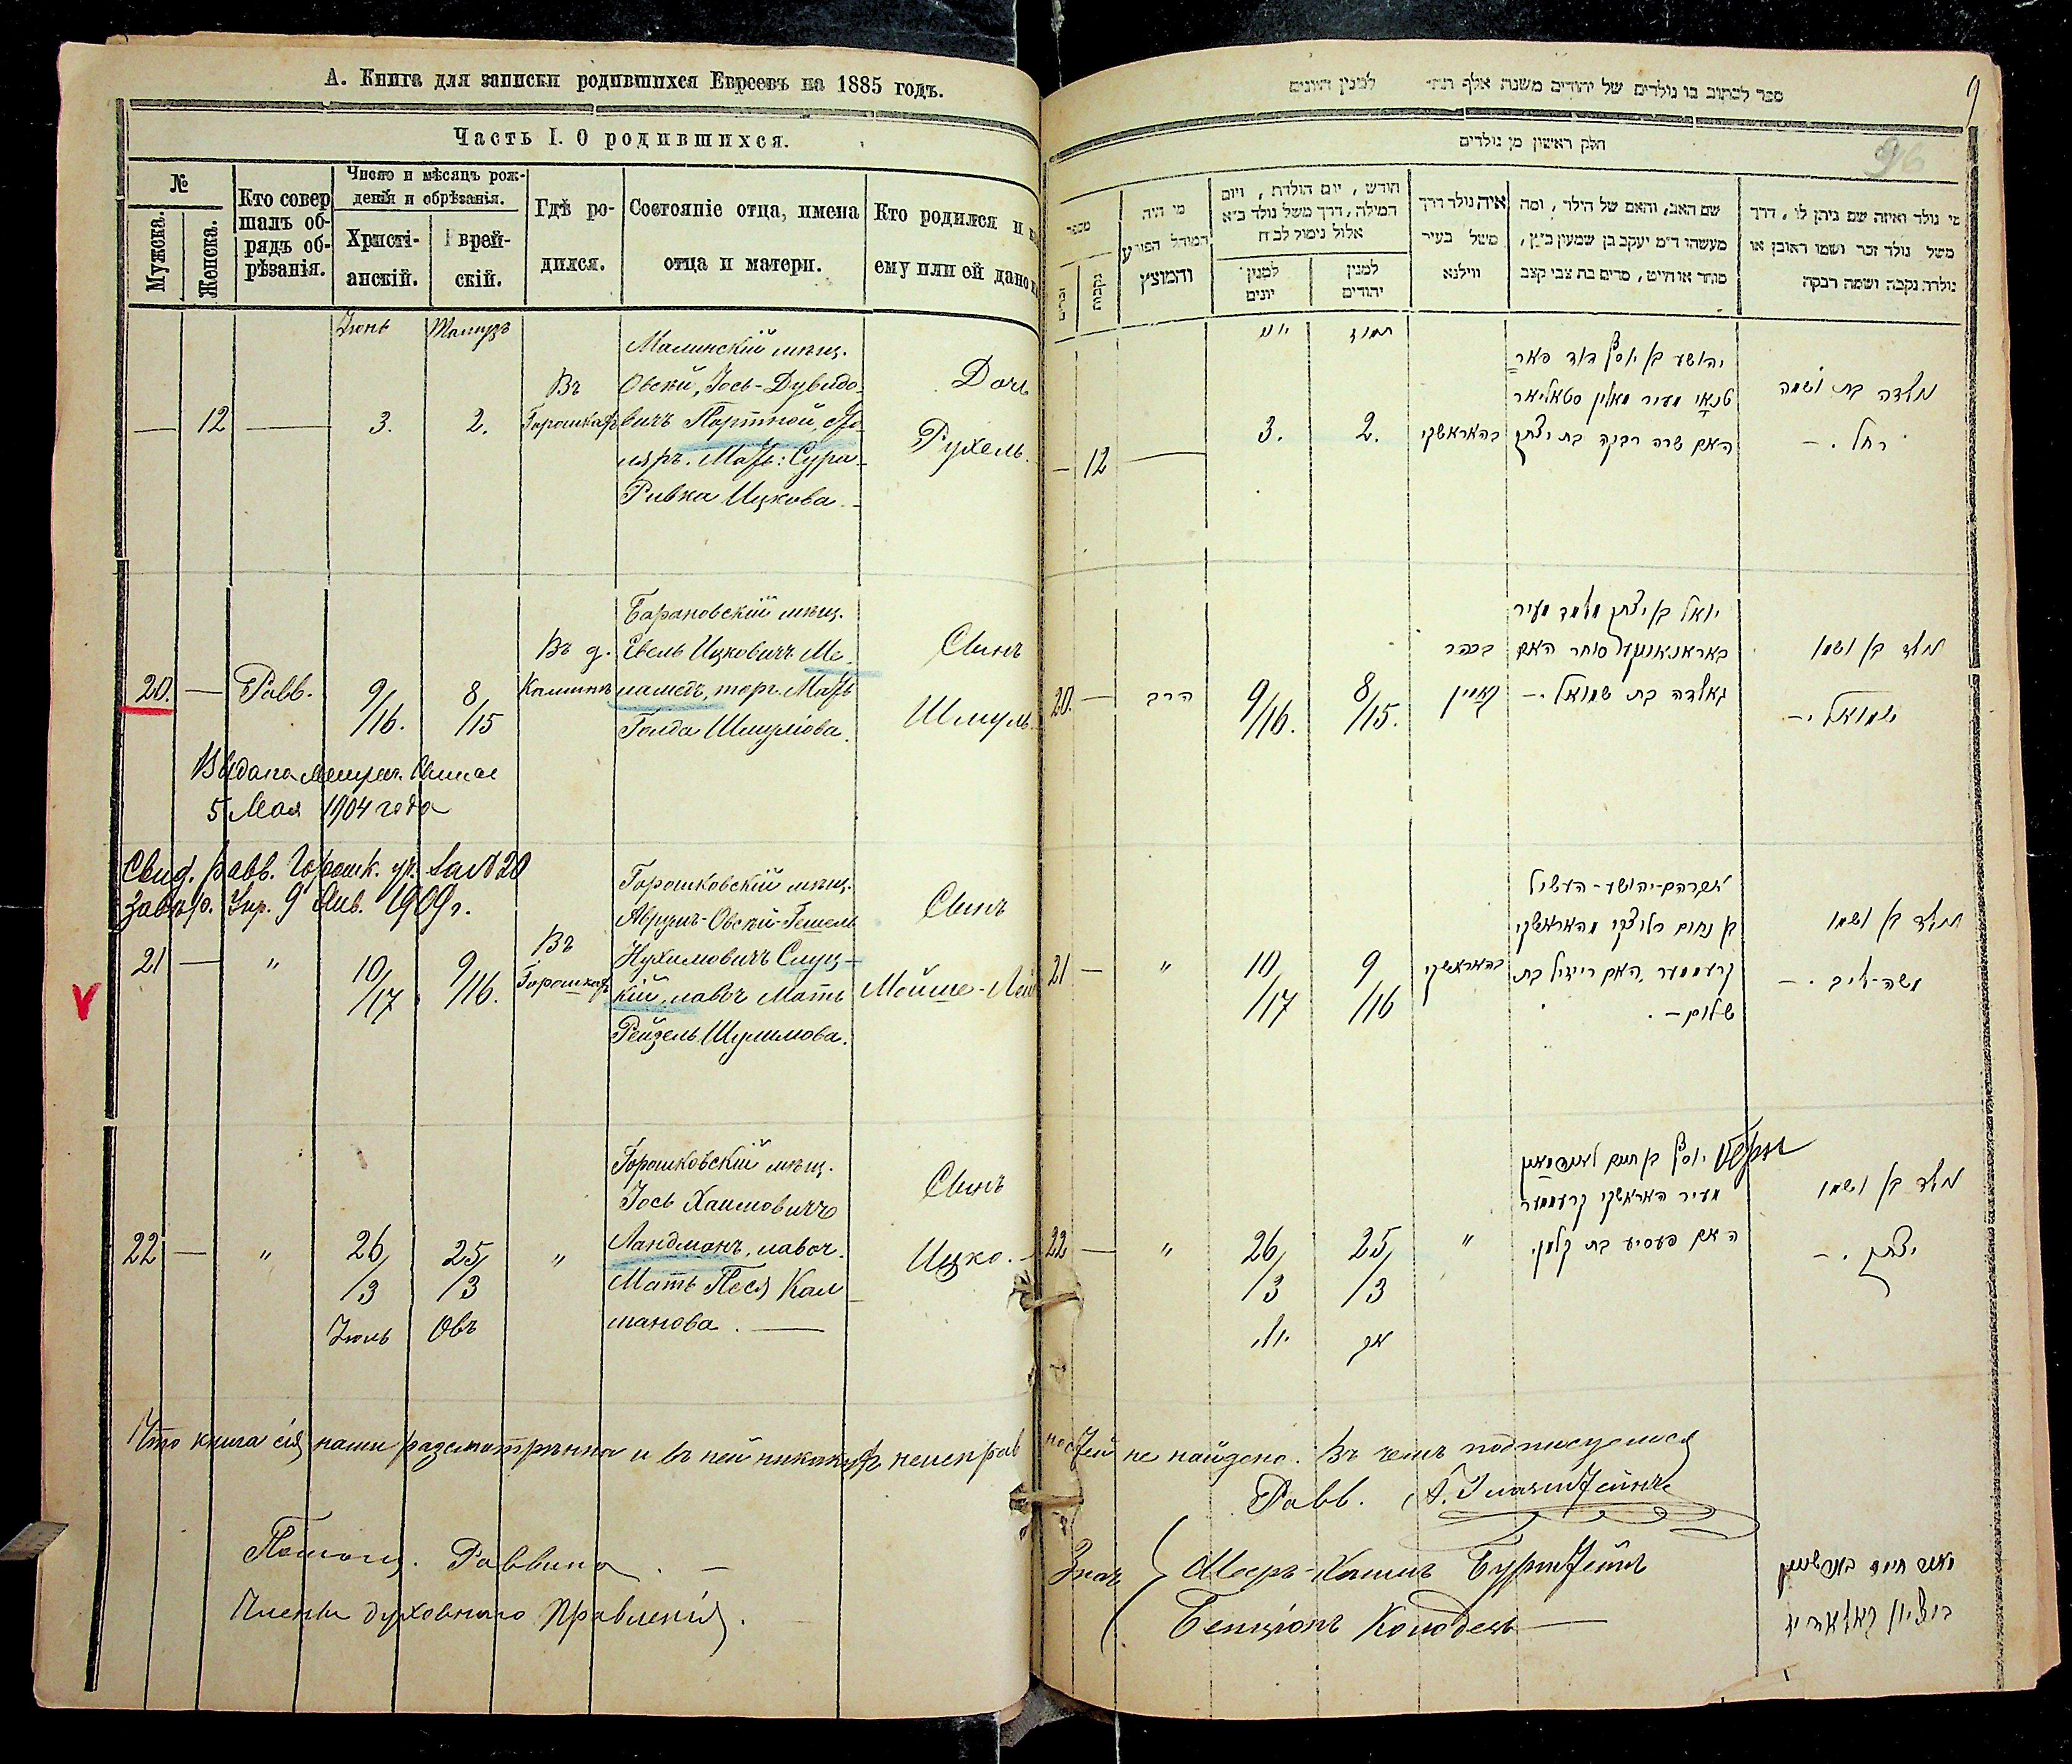 А. Книга для записки родившихся Евреевъ на 1885 годъ.
Часть I. О родившихся.
№
Мужска.
Женска.
Кто совер
шалъ об-
рядъ об-
рѣзанія.
Число и мѣсяцъ рож-
денія и обрѣзанія.
Христі-
анскій.
Еврей-
скій.
Гдѣ ро-
дился.
Состояніе отца, имена
отца и матери.
Кто родился и
ему или ей дано
Іюнь
Тамузъ
— 12 — 3. 2.
Въ
Горошкахъ
Малинскій мѣщ.
Овсѣй, Іось-Дувидо-
вичъ Портной, сто-
ляръ. Мать: Сура-
Ривка Ицкова —
Дочь
Рухель.
20. — Равв. 9/16. 8/15
Въ д.
Барановскій мѣщ.
Евель Ицковичъ Ме-
ламедъ, торг. Мать
Голда Шмулiова.
Сынъ
Шмуль.
Выдана Метрич. Выпись
5 Мая 1904 года
Свид. равв. Горошк. уч. за № 20
Завѣр. Упр. 9 Янв. 1909 г.
21 — " 10/17 9/16.
Въ
Горошкахъ
Горошковскій мѣщ.
Аврумъ-Овсѣй-Гешель
Нухимовичъ Слуц-
кій, лавоч. Мать
Рейзель Шулимова.
Сынъ
Мойше-Лей
22 — " 26/3 25/3 "
Іюль Овъ
Горошковскій мѣщ.
Іось Хаимовичъ
Ландманъ, лавоч.
Мать Песя Кал-
манова. —
Сынъ
Ицко. —
Что книга сія нами разсмотрѣнна и въ ней никакихъ неисправ
Помощ. Раввина. —
Члены духовнаго Правленія.
ספר לכתוב בו נולדים של יהודים משנת אלף תת״ למנין היונים
9
96
חלק ראשון מן נולדים
מספר
זכרים
נקבות
מי היה
המוהל הפורע
והמוצץ
חודש, יום הולדת, ויום
המילה, דרך משל נולד כ״א
אלול נימול לכ״ח
למנין
יונים
למנין
יהודים
איה נולד דרך
משל בעיר
ווילנא
שם האב, והאם של הילד, ומה
מעשהו ד״מ יעקב בן שמעון כ״ץ,
סוחר או חייט, מרים בת צבי קצב
מי נולד ואיזה שם ניתן לו, דרך
משל נולד זכר ושמו ראובן או
נולדה נקבה ושמה רבקה
יוני
תמוז
— 12 — 3. 2.
בהאראשקי
יהושע בן יוסף דוד פאר
טנאי מעיר מאלין סטאליאר
האם שרה רבקה בת יצחק
נולדה בת ושמה
רחל. —
20. — הרב 9/16. 8/15.
בכפר
קאמין
יואל בן יצחק מלמד מעיר
סוחר האם
גאלדה בת שמואל. —
נולד בן ושמו
שמואל. —
21 — " 10/17 9/16
בהאראשקי
אברהם-יהושע-העשיל
בן נחום סלוצקי מהאראשקי
קרעמער. האם רייזיל בת
שלום —.
נולד בן ושמו
משה-לייב. —
22 — " 26/3 25/3 "
יולי אב
יוסף בן חיים לאנדמאן
מעיר האראשקי קרעמער
האם פעסיע בת קלמן.
נולד בן ושמו
יצחק. —
ностей не найдено. Въ чемъ подписуемся
Равв.
Мееръ-Хаимъ Бурштейнъ
Бенціонъ Колодецъ —
מאיר חיים בורשטיין